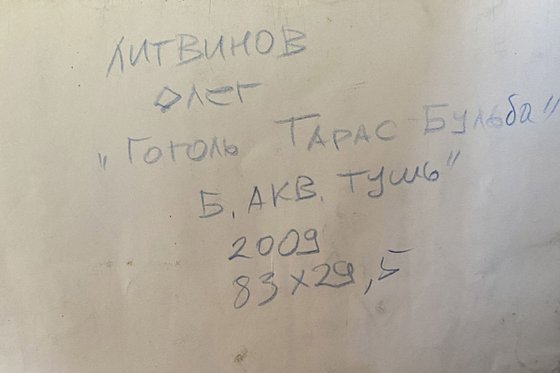 ЛИТВИНОВ
ОЛЕГ
„Гоголь ТАРАС Бульба"
Б. АКВ. ТУШЬ"
2009
83х29,5